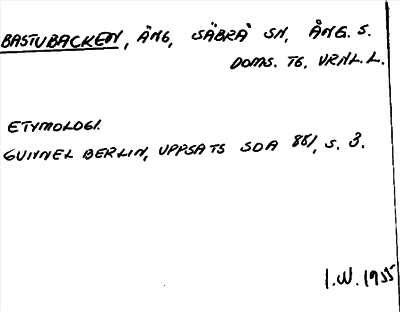 BASTUBACKEN, ÄNG, SÄBRÅ SN, ÅNG. S.
DOMS. TG, VRNL.L.
ETYMOLOGI.
GUNNEL BERLIN, UPPSATS SOA 881, S. 3.
I.W. 1955